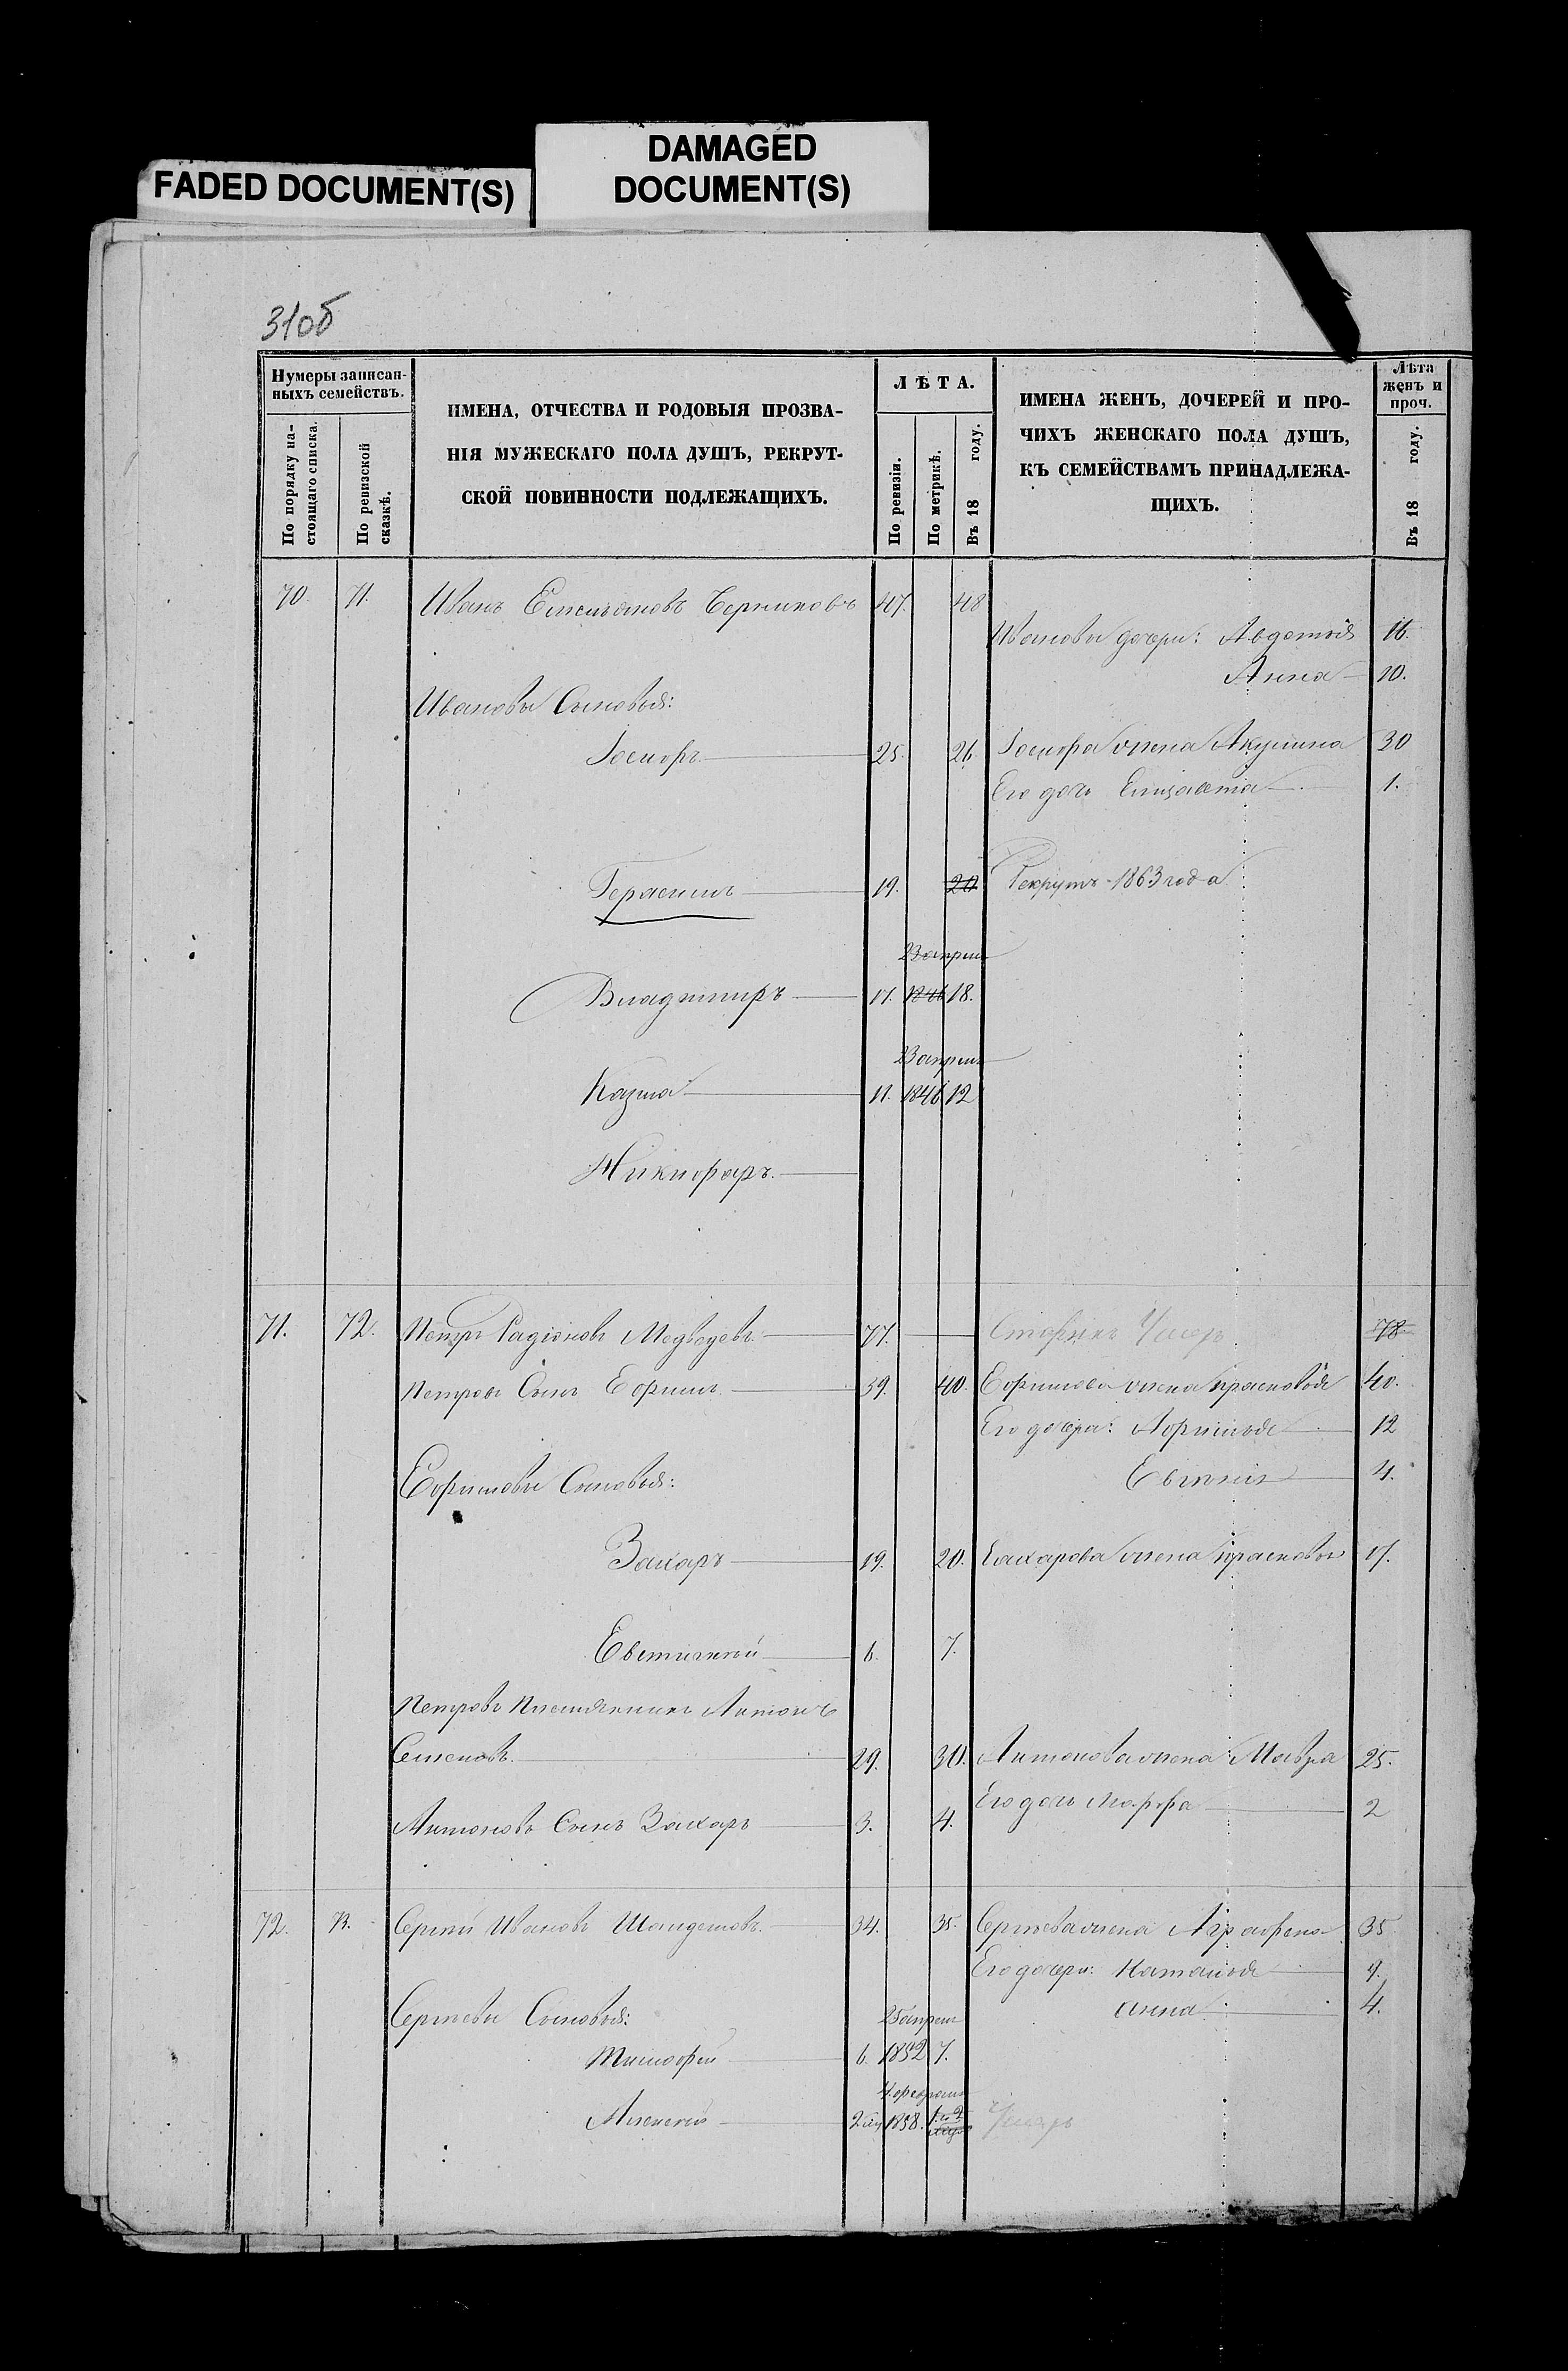 FADED DOCUMENT(S)
DAMAGED
DOCUMENT(S)
31об
Нумеры записан-
ныхъ семействъ.
По порядку на-
стоящаго списка.
По ревизской
сказкѣ.
ИМЕНА, ОТЧЕСТВА И РОДОВЫЯ ПРОЗВА-
НІЯ МУЖЕСКАГО ПОЛА ДУШЪ, РЕКРУТ-
СКОЙ ПОВИННОСТИ ПОДЛЕЖАЩИХЪ.
ЛѢТА.
По ревизіи.
По метрикѣ.
Въ 18 году.
ИМЕНА ЖЕНЪ, ДОЧЕРЕЙ И ПРО-
ЧИХЪ ЖЕНСКАГО ПОЛА ДУШЪ,
КЪ СЕМЕЙСТВАМЪ ПРИНАДЛЕЖА-
ЩИХЪ.
Лѣта
женъ и
проч.
Въ 18 году.
70. 71. Иванъ Емельяновъ Черниковъ 47. 48
Ивановы дочери: Авдотья 16.
Анна 10.
Ивановы Сыновья:
Іосифъ 25. 26. Іосифа жена Акулина 30
Его дочь Елизавета 1.
Герасимъ 19. 20 Рекрутъ 1863 года
23 апреля
Владимиръ 17. 1846 18.
23 апреля
Казма 11. 1846 12
Никифоръ.
71. 72. Петръ Радіоновъ Медведевъ 77. Старикъ Умеръ 78
Петровъ Сынъ Ефимъ 39. 40. Ефимова жена Прасковья 40.
Его дочери: Афимья 12
Евгения 4.
Ефимовы Сыновья:
Захаръ 19. 20. Захарова жена Прасковья 17.
Евстигней 6. 7.
Петровъ Племянникъ Антонъ
Семеновъ. 29. 30. Антонова жена Мавра 25.
Его дочь Марфа 2
Антоновъ Сынъ Захаръ 3. 4.
72. 73. Сергей Ивановъ 34. 35. Сергеева жена Аграфена 35
Его дочери: Наталья 9.
Анна 4.
Сергеевы Сыновья:
25 апреля
Тимофей 6. 1852 7.
4 февраля
Алексей 1858. Умеръ